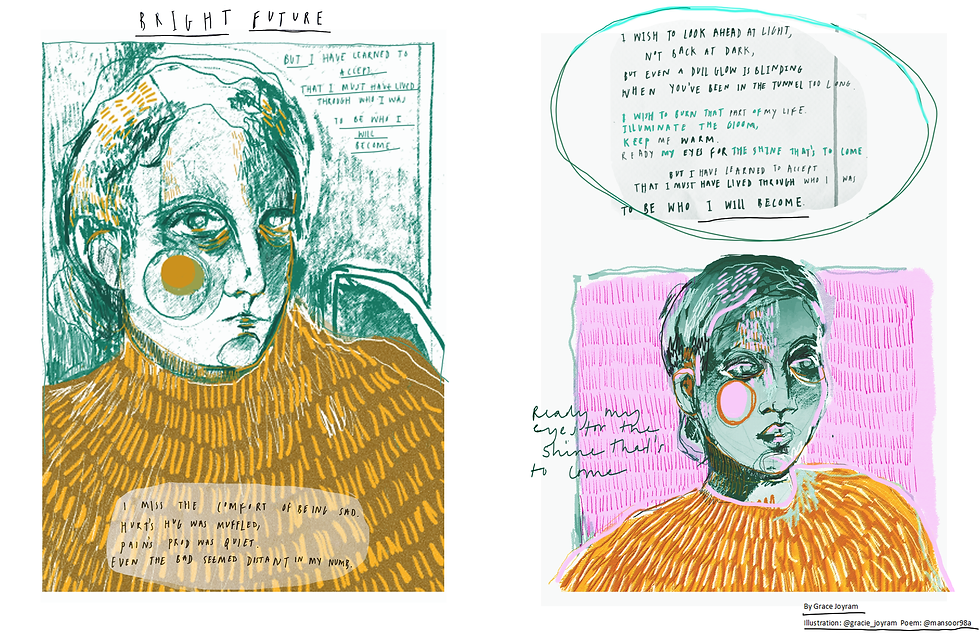 BRIGHT FUTURE
BUT I HAVE LEARNED TO
ACCEPT
THAT I MUST HAVE LIVED
THROUGH WHO I WAS
TO BE WHO I
WILL
BECOME
I MISS THE COMFORT OF BEING SAD.
HURT'S HUG WAS MUFFLED,
PAIN'S PROD WAS QUIET.
EVEN THE BAD SEEMED DISTANT IN MY NUMB.
I WISH TO LOOK AHEAD AT LIGHT,
NOT BACK AT DARK,
BUT EVEN A DULL GLOW IS BLINDING
WHEN YOU'VE BEEN IN THE TUNNEL TOO LONG.
I WISH TO BURN THAT PART OF MY LIFE.
ILLUMINATE THE GLOOM,
KEEP ME WARM.
READY MY EYES FOR THE SHINE THAT'S TO COME
BUT I HAVE LEARNED TO ACCEPT
THAT I MUST HAVE LIVED THROUGH WHO I WAS
TO BE WHO I WILL BECOME.
Ready my
eyes for the
shine that's
to come
By Grace Joyram
Illustration: @gracie_joyram Poem: @mansoor98a